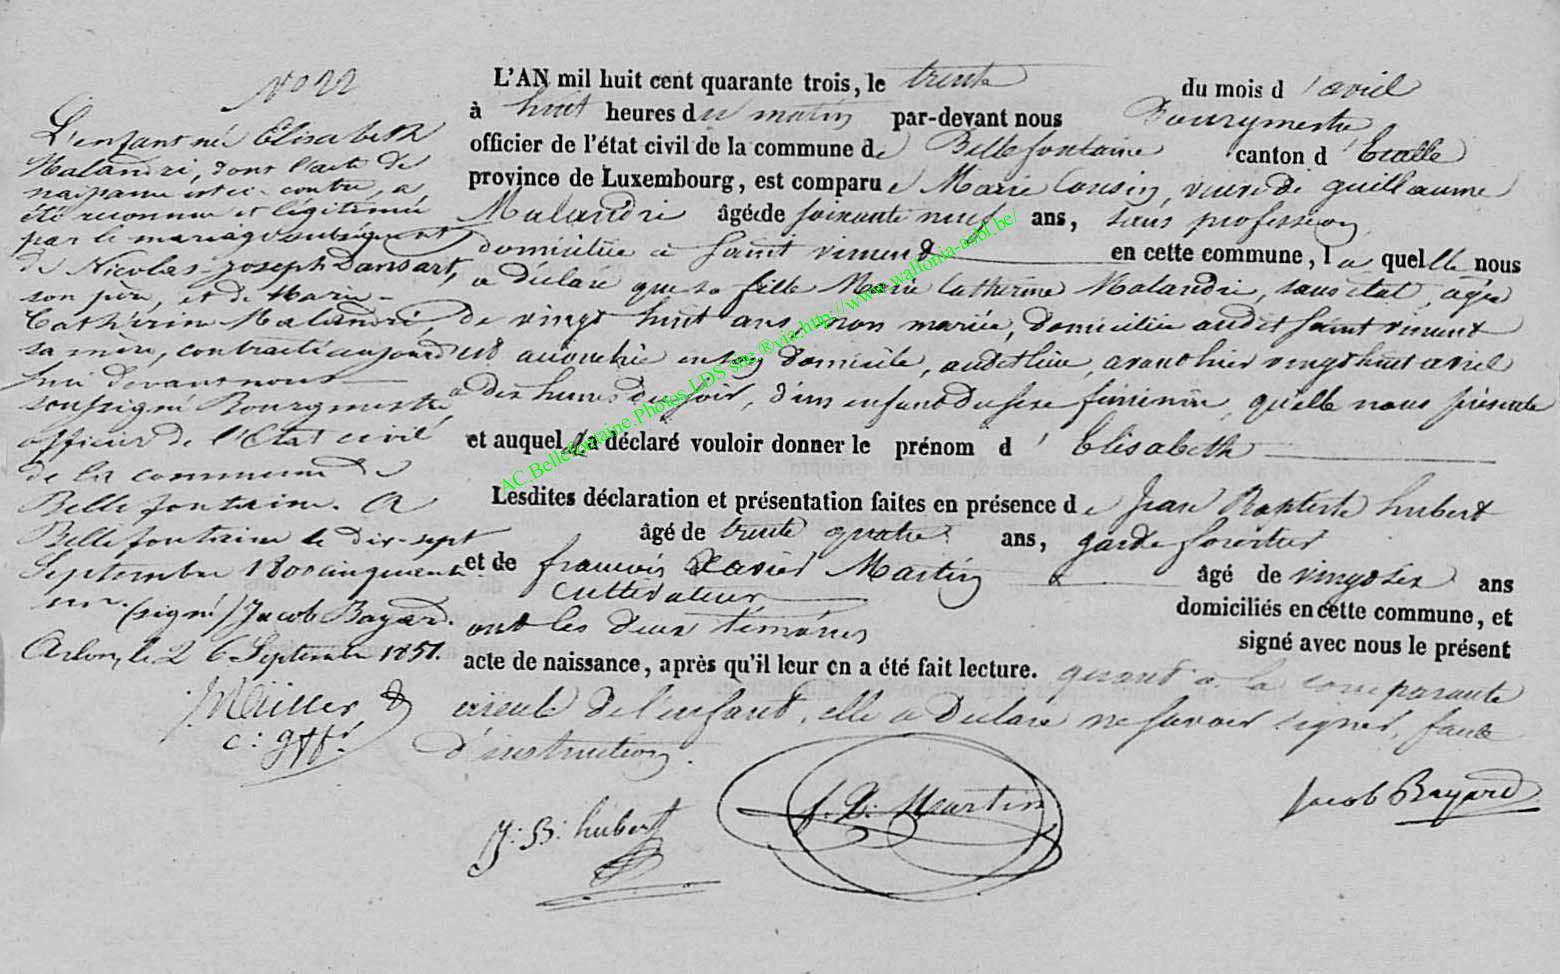 No 22
L'enfant né Elisabeth
Malandri, dont l'acte de
naissance est ci-contre, a
été reconnue et légitimée
par le mariage subséquent
de Nicolas-Joseph Dansart,
son père, et de Marie-
Catherine Malandri,
sa mère, contracté aujourd'
hui devant nous
soussigné Bourgmestre
officier de l'Etat civil
de la commune de
Bellefontaine. A
Bellefontaine le dix-sept
Septembre 1800 cinquante
un. (signé) Jacob Bayard.
Arlon, le 26 Septembre 1851.
J. Müller
c: gffr
L'AN mil huit cent quarante trois, le trente du mois d'avril
à huit heures du matin par-devant nous Bourgmestre
officier de l'état civil de la commune de Bellefontaine canton d'Etalle
province de Luxembourg, est comparue Marie Cousin, veuve de guillaume
Malandri âgée de soixante neuf ans, sans profession
domiciliée à Saint vincent en cette commune, laquelle nous
a déclaré que sa fille Marie Catherine Malandri, sans état, agée
de vingt huit ans, non mariée, domiciliée audit Saint vincent
est accouchée en son domicile, audit lieu, avant hier vingt huit avril
a dix heures du soir, d'un enfant du sexe feminin, qu'elle nous présente
et auquel elle a déclaré vouloir donner le prénom d'Elisabeth
Lesdites déclaration et présentation faites en présence de Jean Baptiste hubert
âgé de trente quatre ans, garde forestier
et de francois Xavier Martin âgé de vingt six ans
cultivateur domiciliés en cette commune, et
ont les deux témoins signé avec nous le présent
acte de naissance, après qu'il leur en a été fait lecture. quant à la comparante
ayeule de l'enfant, elle a declaré ne savoir signer, faute
d'instruction.
J: B: hubert
f. X. Martin
Jacob Bayard
AC.Bellefontaine.Photos.LDS site.®via:http://www.wallonia-asbl.be/